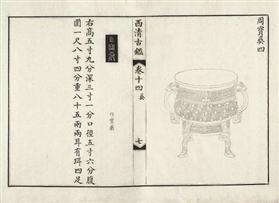 周寶彝四
西清古鑑
卷十四 彝
七
作寶彝
右高五寸九分深三寸一分口徑五寸六分腹
圍一尺八寸四分重八十五兩兩耳有珥四足